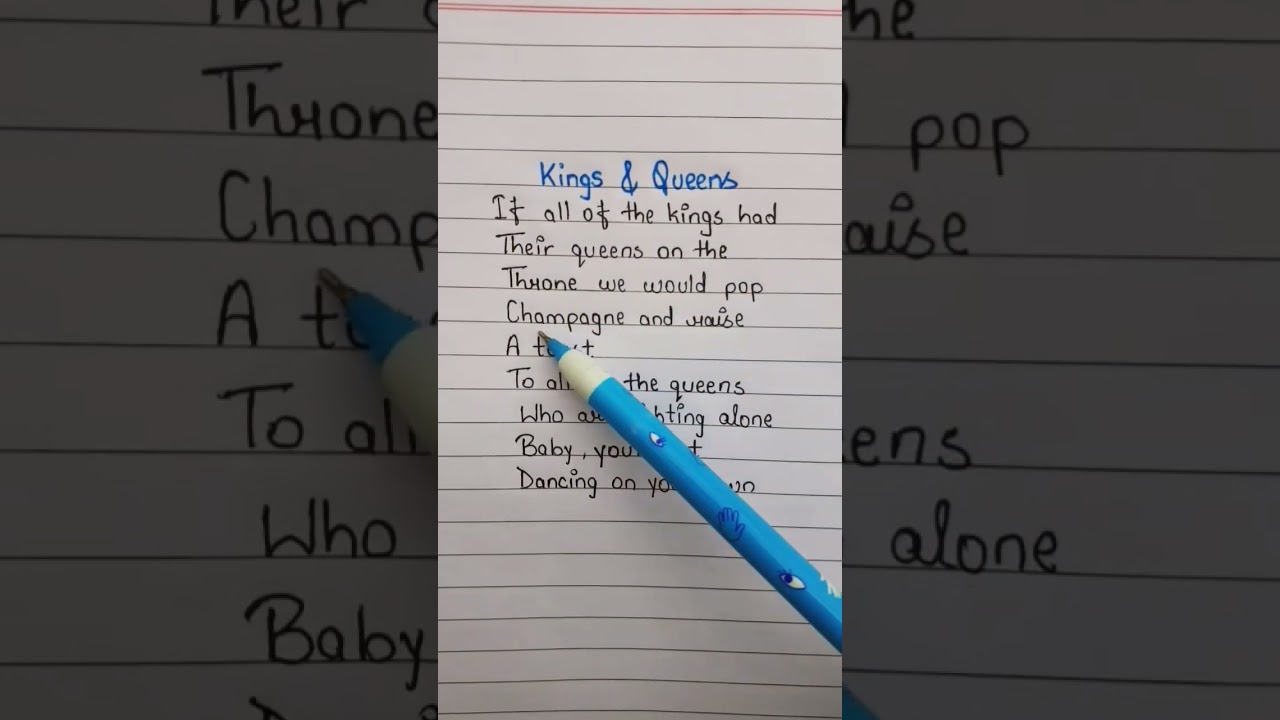 Kings & Queens
If all of the kings had
Their queens on the
Throne we would pop
Champagne and raise
A
To the queens
Who alone
Baby,
Dancing on